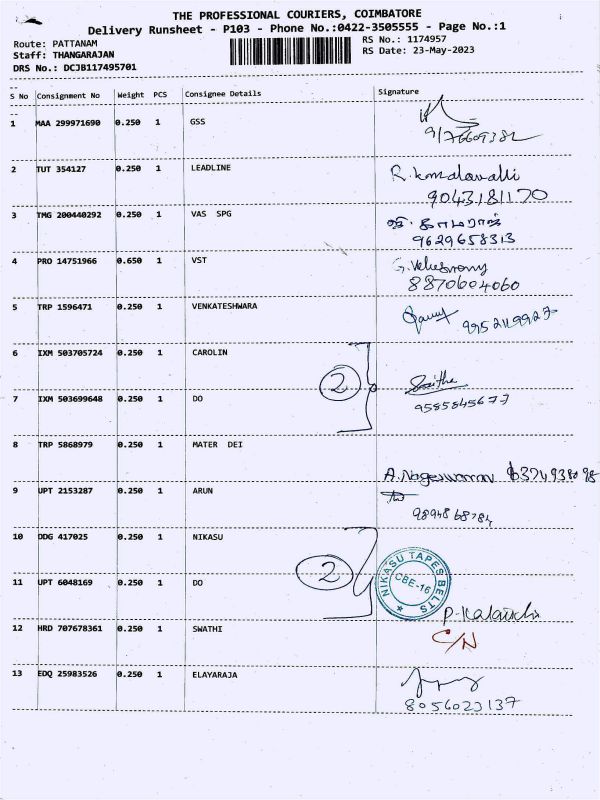 THE PROFESSIONAL COURIERS, COIMBATORE
Delivery Runsheet - P103 - Phone No.:0422-3505555 - Page No.:1
Route: PATTANAM
RS No.: 1174957
Staff: THANGARAJAN
RS Date: 23-May-2023
DRS No.: DCJB117495701
S No Consignment No Weight PCS Consignee Details Signature
1 MAA 299971690 0.250 1 GSS
2 TUT 354127 0.250 1 LEADLINE R. Komalavalli
9043181170
3 TMG 200440292 0.250 1 VAS SPG காமராஜ்
9629658313
4 PRO 14751966 0.650 1 VST G. Veluswamy
8870604060
5 TRP 1596471 0.250 1 VENKATESHWARA
6 IXM 503705724 0.250 1 CAROLIN
2
7 IXM 503699648 0.250 1 DO
9585845677
8 TRP 5868979 0.250 1 MATER DEI
A. Nageswaran
9 UPT 2153287 0.250 1 ARUN
9894868784
10 DDG 417025 0.250 1 NIKASU
2
NIKASU TAPES BELTS
CBE-16
11 UPT 6048169 0.250 1 DO
12 HRD 707678361 0.250 1 SWATHI C/N
13 EDQ 25983526 0.250 1 ELAYARAJA
8056023137